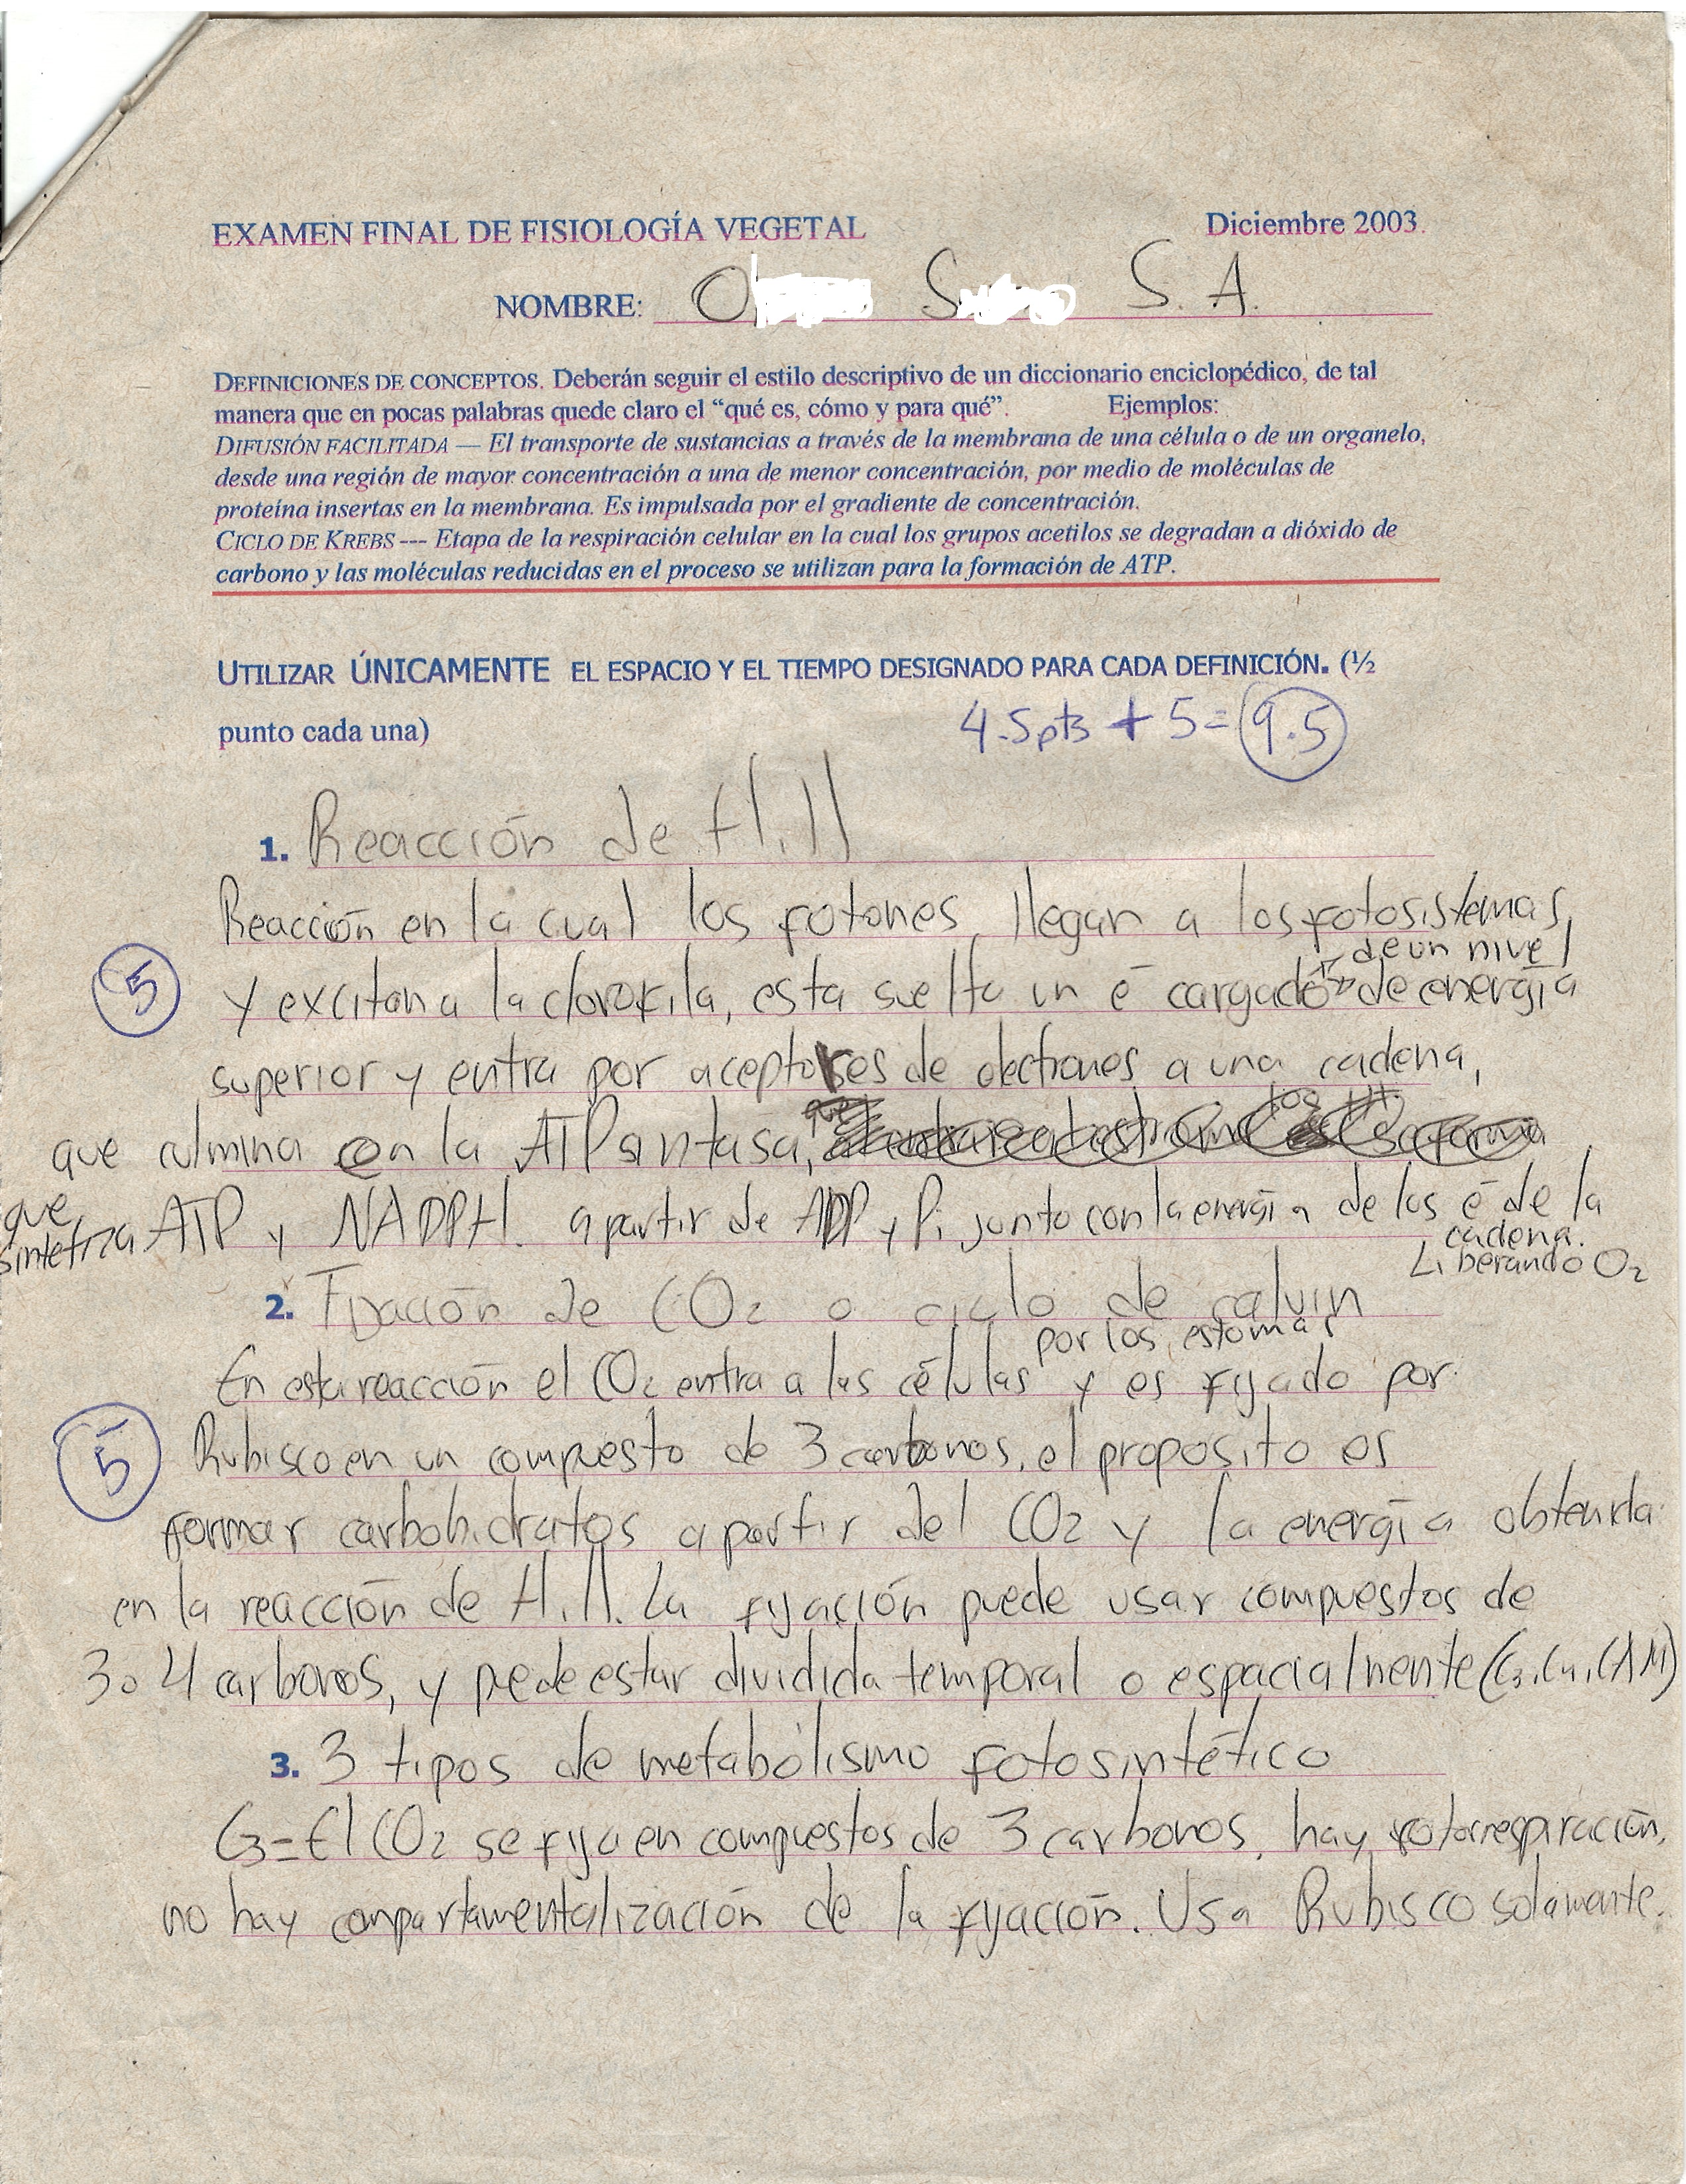 EXAMEN FINAL DE FISIOLOGÍA VEGETAL Diciembre 2003.
NOMBRE: S. A.
DEFINICIONES DE CONCEPTOS. Deberán seguir el estilo descriptivo de un diccionario enciclopédico, de tal
manera que en pocas palabras quede claro el “qué es, cómo y para qué”. Ejemplos:
DIFUSIÓN FACILITADA — El transporte de sustancias a través de la membrana de una célula o de un organelo,
desde una región de mayor concentración a una de menor concentración, por medio de moléculas de
proteína insertas en la membrana. Es impulsada por el gradiente de concentración.
CICLO DE KREBS --- Etapa de la respiración celular en la cual los grupos acetilos se degradan a dióxido de
carbono y las moléculas reducidas en el proceso se utilizan para la formación de ATP.
UTILIZAR ÚNICAMENTE EL ESPACIO Y EL TIEMPO DESIGNADO PARA CADA DEFINICIÓN. (½
punto cada una)
4.5pts + 5 = 9.5
1. Reacción de Hill
Reacción en la cual los fotones llegan a los fotosistemas,
de un nivel
5 y excitan a la clorofila, esta suelta un é cargado de energía
superior y entra por aceptores de electrones a una cadena,
que culmina en la ATPsintasa,
que
sintetiza ATP y NADPH. a partir de ADP y Pi junto con la energía de los é de la
cadena.
Liberando O2
2. Fijación de CO2 o ciclo de calvin
por los estomas
En esta reacción el CO2 entra a las células y es fijado por
5 Rubisco en un compuesto de 3 carbonos, el proposito es
formar carbohidratos a partir del CO2 y la energía obtenida
en la reacción de Hill. La fijación puede usar compuestos de
3 o 4 carbonos, y puede estar dividida temporal o espacialmente (C3, C4, CAM)
3. 3 tipos de metabolismo fotosintético
C3 = El CO2 se fija en compuestos de 3 carbonos, hay fotorrespiración,
no hay compartamentalización de la fijación. Usa Rubisco solamente.